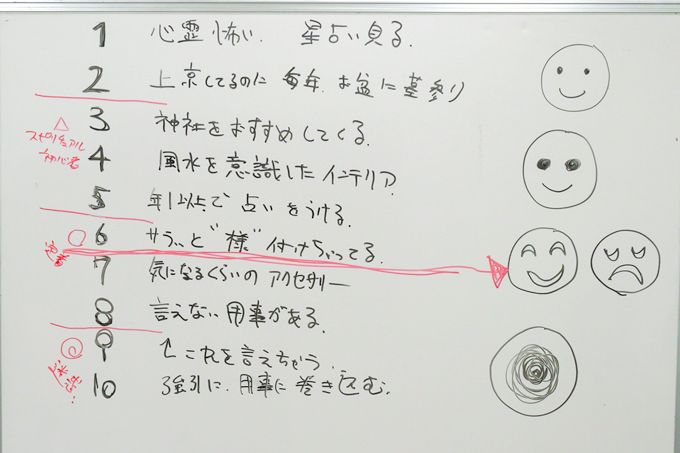 1 心霊怖い. 星占い見る.
2 上京してるのに 毎年. お盆に墓参り
△ スピリチュアル 初心者
3 神社をおすすめしてくる.
4 風水を意識したインテリア.
5 年1以上で占いをうける.
6 サラッと"様"付けちゃってる.
7 気になるくらいのアクセサリー
8 言えない用事がある.
9 ↑これを言えちゃう.
10 強引に.用事に巻き込む.